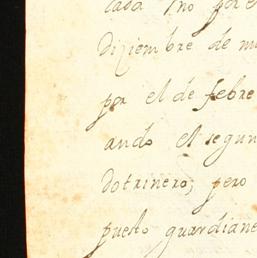 cada
Diziembre de m
por el de febre
ando el segun
dotrinero; pero
puesto guardiane